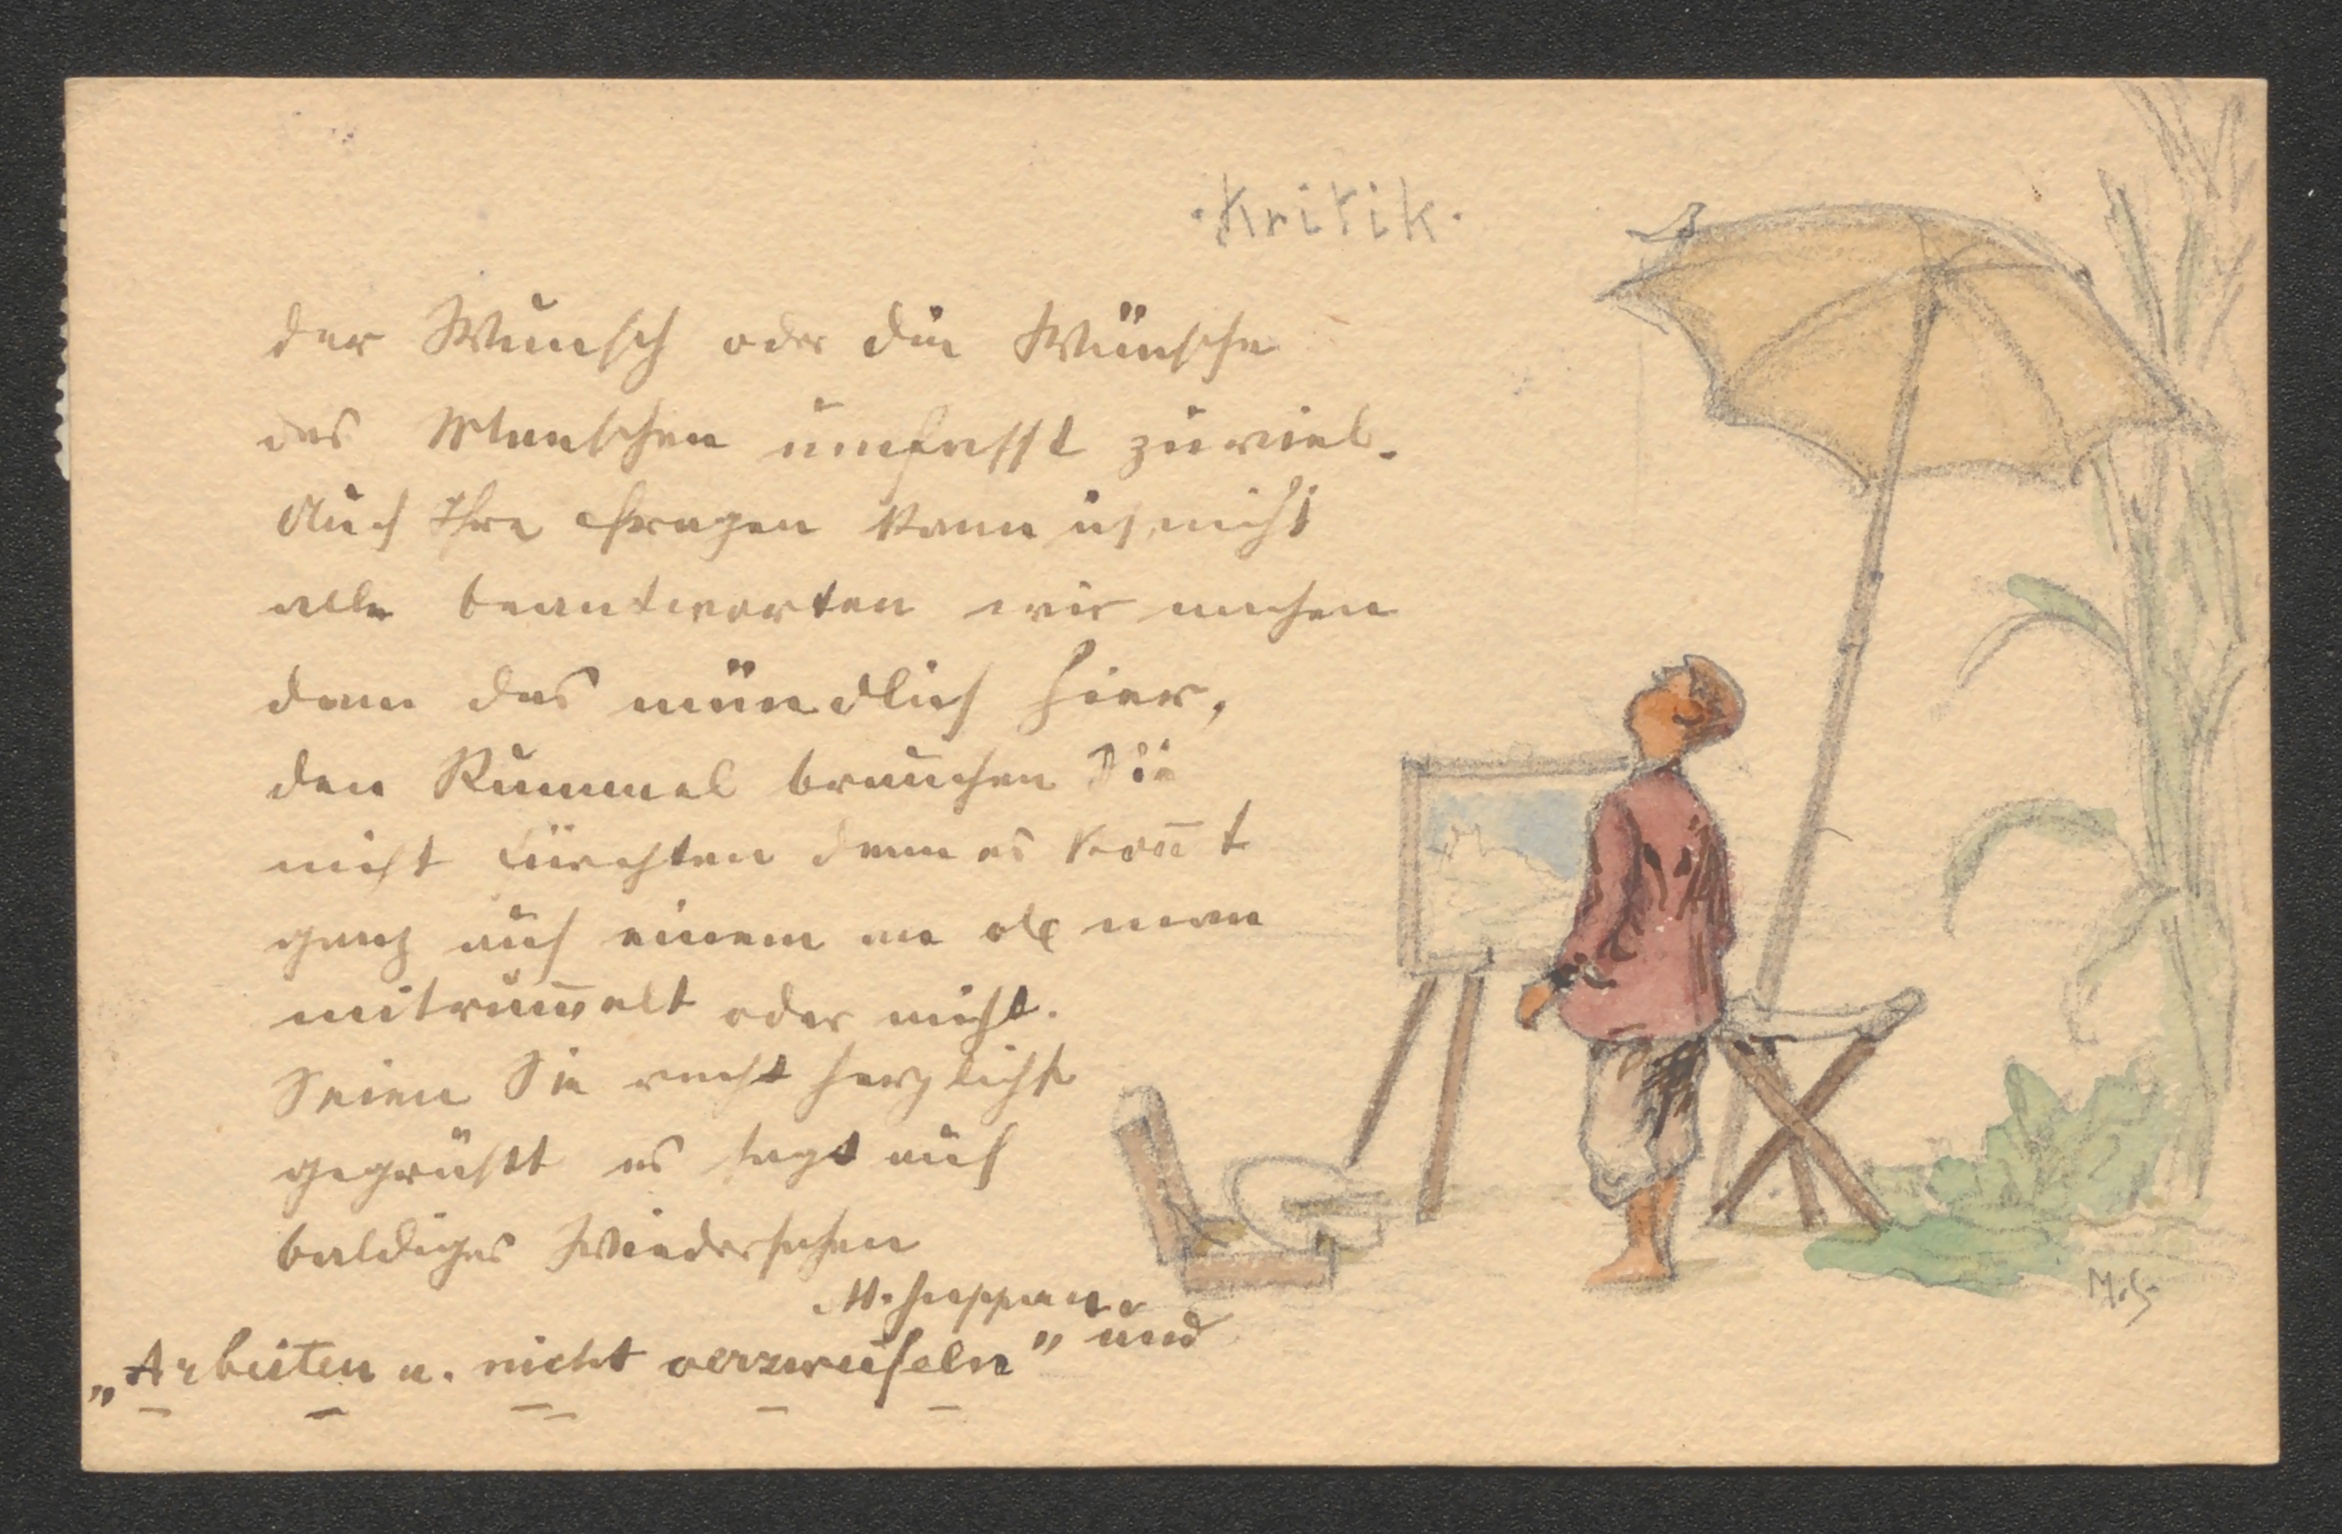 ·Kritik·
der Wunsch oder die Wünsche
des Menschen umfasst zuviel.
Auch Ihre Fragen kann ich nicht
alle beantworten wir machen
dann das mündlich hier,
den Rummel brauchen Sie
nicht fürchten denn es kom̅t
ganz auf einem an ob man
mitrum̅elt oder nicht.
Seien Sie recht herzlichst
gegrüßt es sagt auf
baldiges Wiedersehen
M.
„Arbeiten u. nicht verzweifeln" und
M.S